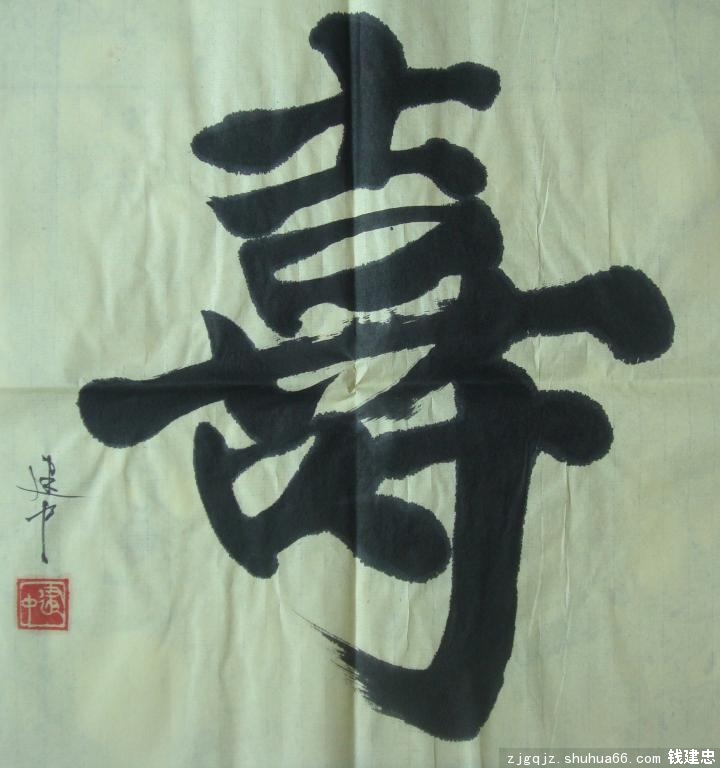 壽
建中
建中
zjgqjz.shuhua66.com 钱建忠